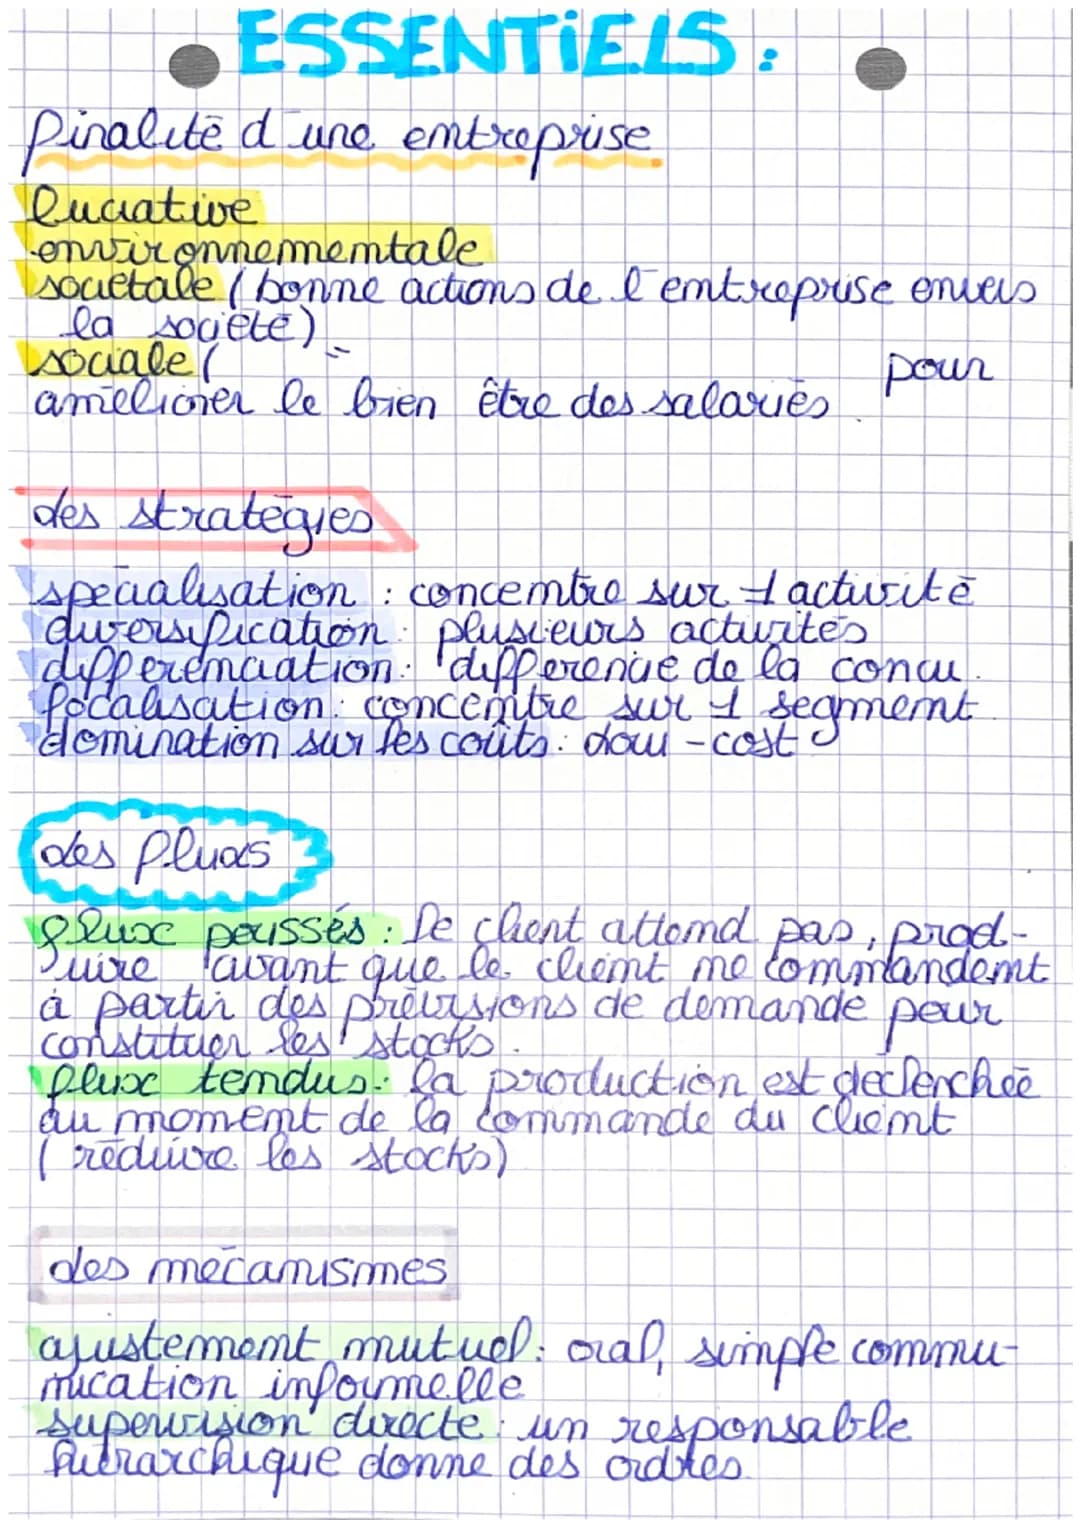 ESSENTiELS :
finalité d'une entreprise
lucrative
environnementale
sociétale (bonne actions de l'entreprise envers
la société)
sociale (
pour
améliorer le bien être des salariés.
des stratégies
spécialisation : concentre sur 1 activité
diversification : plusieurs activités
différenciation : différencie de la concu.
focalisation : concentre sur 1 segment
domination sur les coûts : low-cost
des flux
flux poussés : le client attend pas, prod-
uire avant que le client ne commandent
à partir des prévisions de demande pour
constituer les stocks.
flux tendus : la production est déclenchée
au moment de la commande du client
(réduire les stocks)
des mécanismes
ajustement mutuel : oral, simple commu-
nication informelle
supervision directe : un responsable
hiérarchique donne des ordres